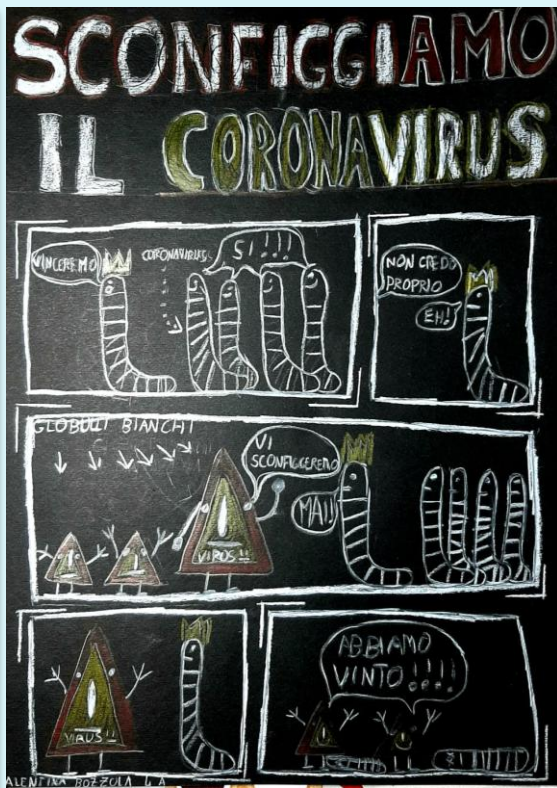 SCONFIGGIAMO
IL CORONAVIRUS
VINCEREMO
CORONAVIRUS
SI!!!!
NON CREDO
PROPRIO
EH!
GLOBULI BIANCHI
VI
SCONFIGGEREMO
MAI!!
VIRUS!!
VIRUS!!
ABBIAMO
VINTO!!!!
ALENTINA BOZZOLA 4 A